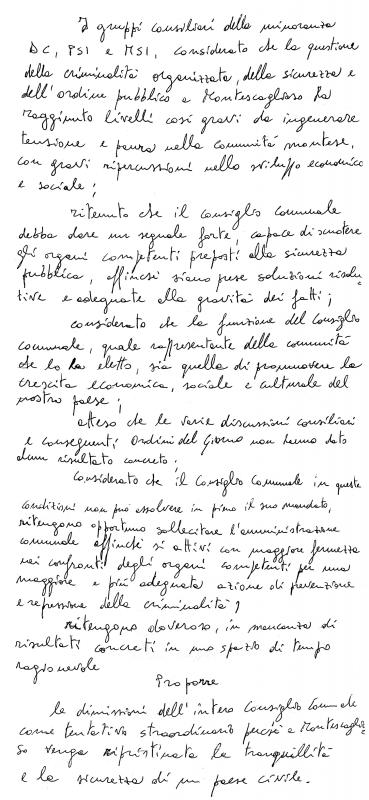 I gruppi consiliari della minoranza
DC, PSI e MSI, considerato che la questione
della criminalità organizzata, della sicurezza e
dell'ordine pubblico a Montescaglioso ha
raggiunto livelli così gravi da ingenerare
tensione e paura nella comunità montese,
con gravi ripercussioni nello sviluppo economico
e sociale;
ritenuto che il consiglio comunale
debba dare un segnale forte, capace di scuotere
gli organi competenti preposti alla sicurezza
pubblica, affinché siano prese soluzioni risolu-
tive e adeguate alla gravità dei fatti;
considerato che la funzione del Consiglio
comunale, quale rappresentante della comunità
che lo ha eletto, sia quella di promuovere la
crescita economica, sociale e culturale del
nostro paese;
atteso che le varie discussioni consiliari
e conseguenti Ordini del Giorno non hanno dato
alcun risultato concreto;
Considerato che il Consiglio Comunale in queste
condizioni non può assolvere in pieno il suo mandato,
ritengono opportuno sollecitare l'amministrazione
comunale affinché si attivi con maggiore fermezza
nei confronti degli organi competenti per una
maggiore e più adeguata azione di prevenzione
e repressione della criminalità;
ritengono doveroso, in mancanza di
risultati concreti in uno spazio di tempo
ragionevole
Proporre
le dimissioni dell'intero Consiglio Comunale
come tentativo straordinario perché a Montescaglio-
so venga ripristinata la tranquillità
e la sicurezza di un paese civile.